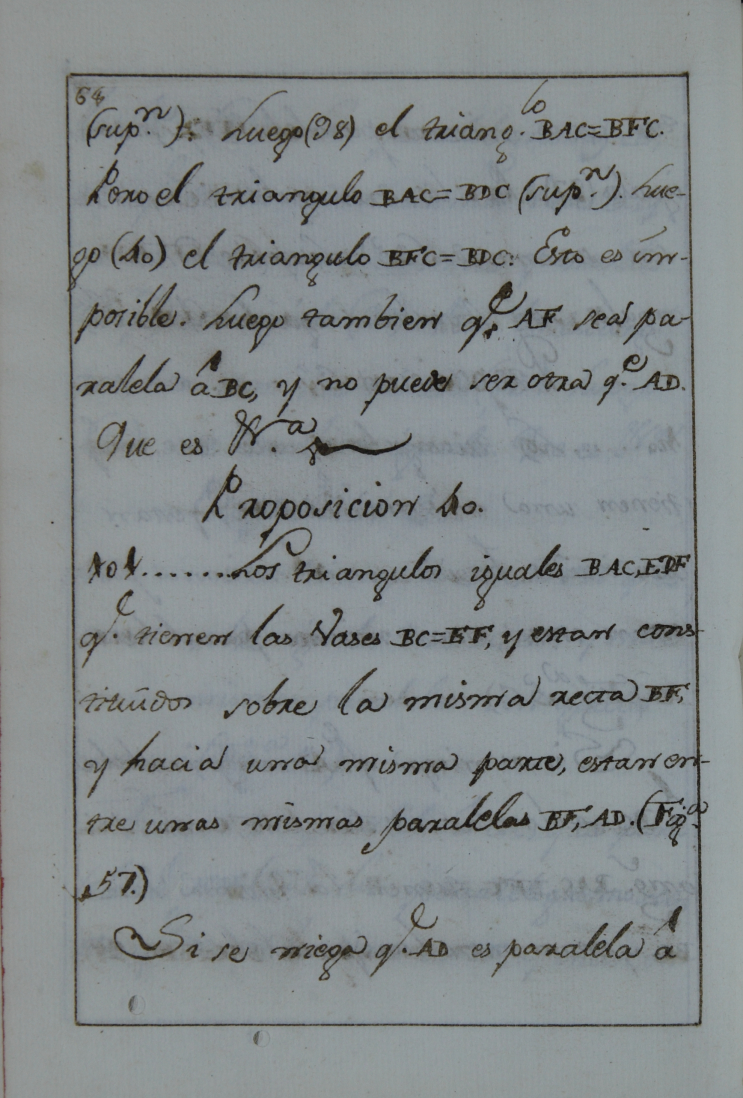 64
(sup.n): Luego (98) el triang.lo BAC=BFC.
Pero el triangulo BAC=BDC (sup.n). Lue-
go (40) el triangulo BFC=BDC: Esto es im-
posible. Luego tambien q.e AF sea pa-
ralela â BC, y no puede ser otra q.e AD.
Que es &.a
Proposicion 40.
101.......Los triangulos iguales BAC, EDF
q.e tienen las Vases BC=EF, y estan cons-
tituidos sobre la misma recta BF,
y hacia una misma parte, estan en-
tre unas mismas paralelas BF, AD. (Fig.a
57.)
Si se niega q.e AD es paralela â